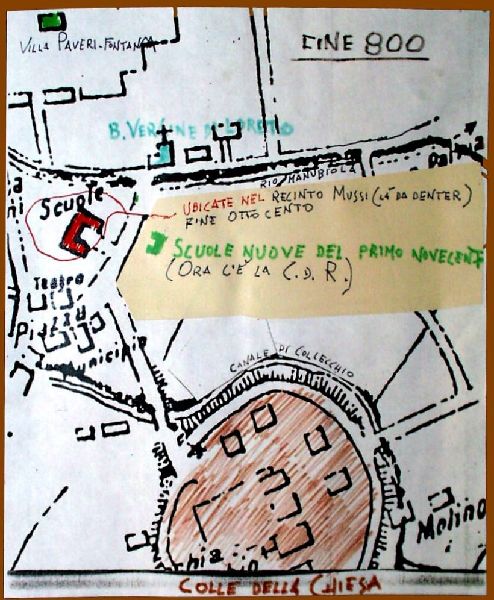 FINE 800
VILLA PAVERI-FONTANA
B. VERGINE DI LORETO
RIO MANUBIOLA
Scuole
UBICATE NEL RECINTO MUSSI (LÄ DA DENTER)
FINE OTTOCENTO
SCUOLE NUOVE DEL PRIMO NOVECENT
(ORA C'È LA C.D.R.)
Teatro
Piazza
Municipio
CANALE DI COLLECCHIO
Molino
COLLE DELLA CHIESA